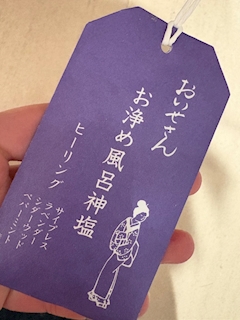 おいせさん
お浄め風呂神塩
ヒーリング
サイプレス
ラベンダー
シダーウッド
ペパーミント